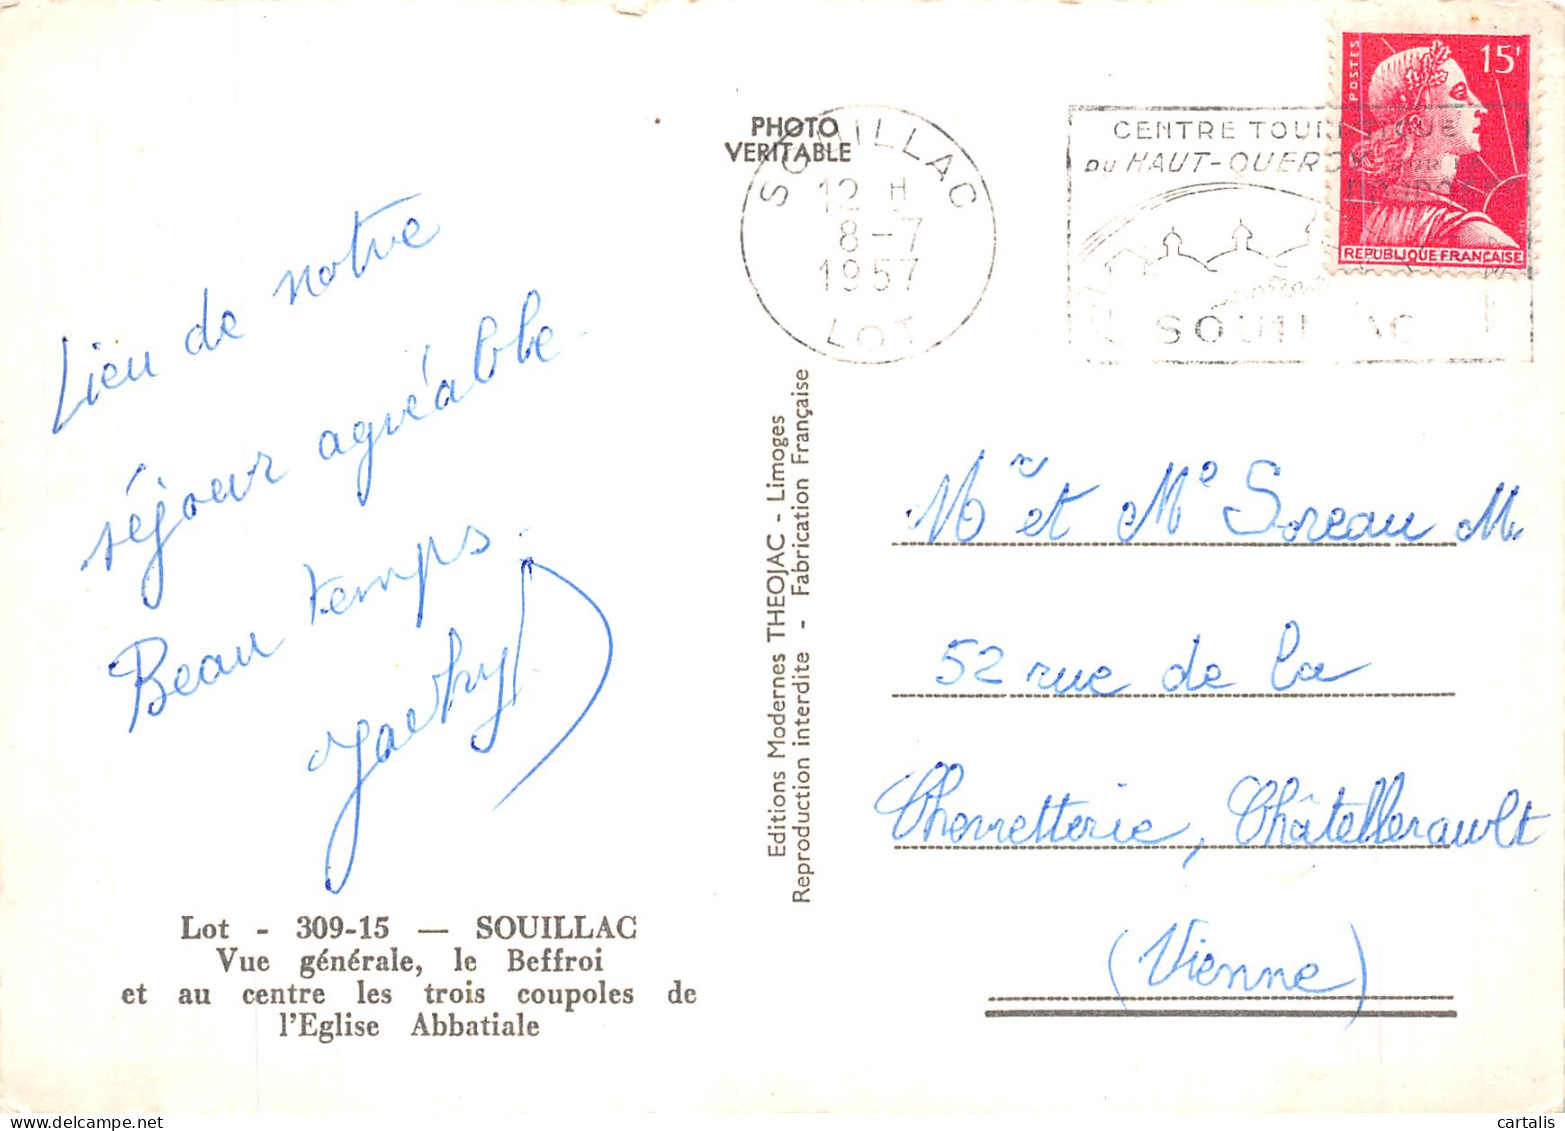 PHOTO
VERITABLE
SOUILLAC
12 H
8-7
1957
LOT
CENTRE TOURISTIQUE
DU HAUT-QUERCY SUR LA
DORDOGNE
SOUILLAC
POSTES
15F
REPUBLIQUE FRANÇAISE
Lieu de notre
séjour agréable.
Beau temps.
Jacky
Lot - 309-15 — SOUILLAC
Vue générale, le Beffroi
et au centre les trois coupoles de
l'Eglise Abbatiale
Editions Modernes THEOJAC - Limoges
Reproduction interdite - Fabrication Française
Mr et Me Soreau M.
52 rue de la
Chevretterie, Châtellerault
(Vienne)
cartalis